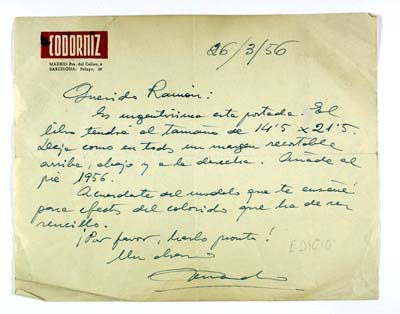 CODORNIZ
MADRID: Pza. del Callao, 4
BARCELONA: Pelayo,
26/3/56
Querido Ramón:
Es urgentísima esta portada. El
libro tendrá el tamaño de 14'5 x 21'5.
Deja como en todas un margen recortable
arriba, abajo y a la derecha. Añade al
pie 1956.
Acuérdate del modelo que te enseñé
para efectos del colorido que ha de ser
sencillo.
¡Por favor, hazlo pronto!
Un abrazo
EDICIO